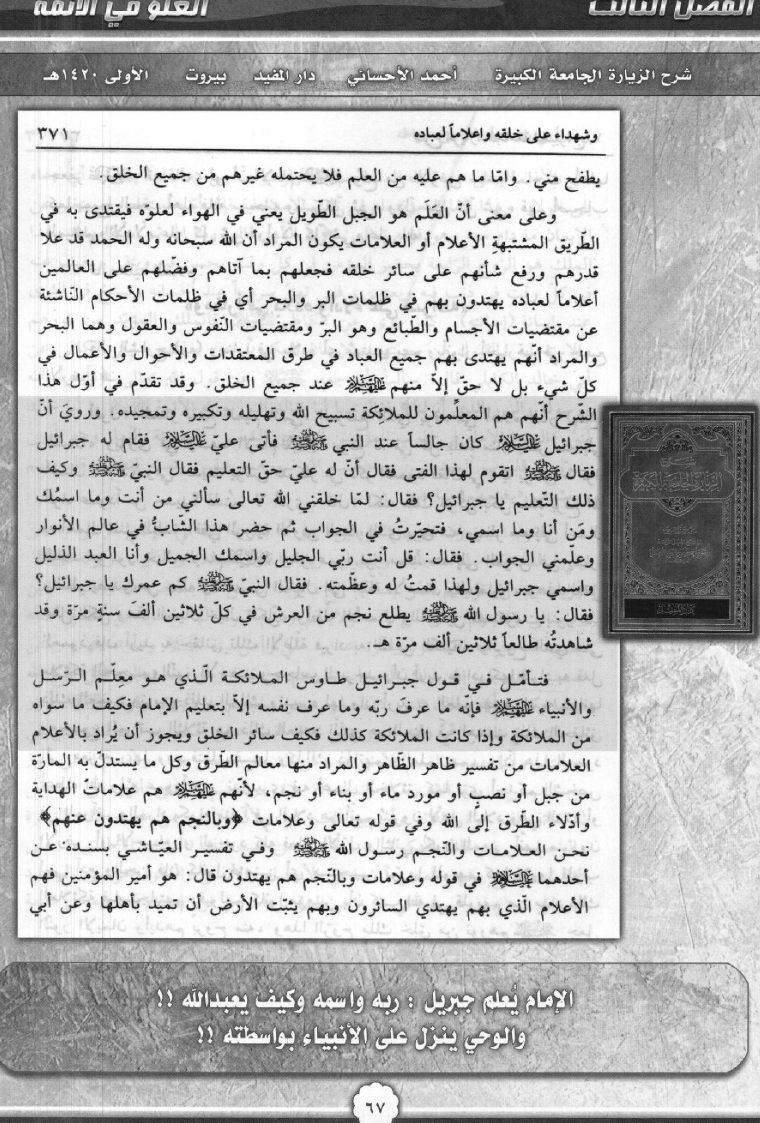 الفصل الثالث
الغلو في الأئمة
شرح الزيارة الجامعة الكبيرة أحمد الأحسائي دار المفيد بيروت الأولى ١٤٢٠هـ
وشهداء على خلقه واعلاماً لعباده ٣٧١
يطفح مني. وامّا ما هم عليه من العلم فلا يحتمله غيرهم من جميع الخلق.
وعلى معنى أنّ العَلَم هو الجبل الطّويل يعني في الهواء لعلوّه فيقتدى به في
الطّريق المشتبهة الأعلام أو العلامات يكون المراد أن الله سبحانه وله الحمد قد علا
قدرهم ورفع شأنهم على سائر خلقه فجعلهم بما آتاهم وفضّلهم على العالمين
أعلاماً لعباده يهتدون بهم في ظلمات البر والبحر أي في ظلمات الأحكام النّاشئة
عن مقتضيات الأجسام والطّبائع وهو البرّ ومقتضيات النّفوس والعقول وهما البحر
والمراد أنّهم يهتدى بهم جميع العباد في طرق المعتقدات والأحوال والأعمال في
كلّ شيء بل لا حقّ إلاّ منهم عليهم السلام عند جميع الخلق. وقد تقدّم في أوّل هذا
الشّرح أنّهم هم المعلّمون للملائكة تسبيح الله وتهليله وتكبيره وتمجيده. ورويَ أنّ
جبرائيل عليه السلام كان جالساً عند النبي صلى الله عليه وآله فأتى عليّ عليه السلام فقام له جبرائيل
فقال صلى الله عليه وآله اتقوم لهذا الفتى فقال أنّ له عليّ حقّ التعليم فقال النبيّ صلى الله عليه وآله وكيف
ذلك التّعليم يا جبرائيل؟ فقال: لمّا خلقني الله تعالى سألني من أنت وما اسمُك
ومَن أنا وما اسمي، فتحيّرتُ في الجواب ثم حضر هذا الشابُّ في عالم الأنوار
وعلّمني الجواب. فقال: قل أنت ربّي الجليل واسمك الجميل وأنا العبد الذليل
واسمي جبرائيل ولهذا قمتُ له وعظّمته. فقال النبيّ صلى الله عليه وآله كم عمرك يا جبرائيل؟
فقال: يا رسول الله صلى الله عليه وآله يطلع نجم من العرش في كلّ ثلاثين ألفَ سنةٍ مرّة وقد
شاهدتُه طالعاً ثلاثين ألف مرّة هـ.
فتأمّل في قول جبرائيل طاوس الملائكة الّذي هو معلّم الرّسل
والأنبياء عليهم السلام فإنه ما عرفَ ربّه وما عرف نفسه إلاّ بتعليم الإمام فكيف ما سواه
من الملائكة وإذا كانت الملائكة كذلك فكيف سائر الخلق ويجوز أن يُراد بالأعلام
العلامات من تفسير ظاهر الظّاهر والمراد منها معالم الطّرق وكل ما يستدلّ به المارّة
من جبل أو نصبٍ أو مورد ماء أو بناء أو نجم، لأنّهم عليهم السلام هم علاماتّ الهداية
وأدّلاء الطّرق إلى الله وفي قوله تعالى وعلامات ﴿وبالنجم هم يهتدون عنهم﴾
نحن العلامات والنّجم رسول الله صلى الله عليه وآله وفي تفسير العيّاشي بسنده عن
أحدهما عليه السلام في قوله وعلامات وبالنّجم هم يهتدون قال: هو أمير المؤمنين فهم
الأعلام الّذي بهم يهتدي السائرون وبهم يثبّت الأرض أن تميد بأهلها وعن أبي
الإمام يُعلم جبريل : ربه واسمه وكيف يعبدالله !!
والوحي ينزل على الأنبياء بواسطته !!
٦٧